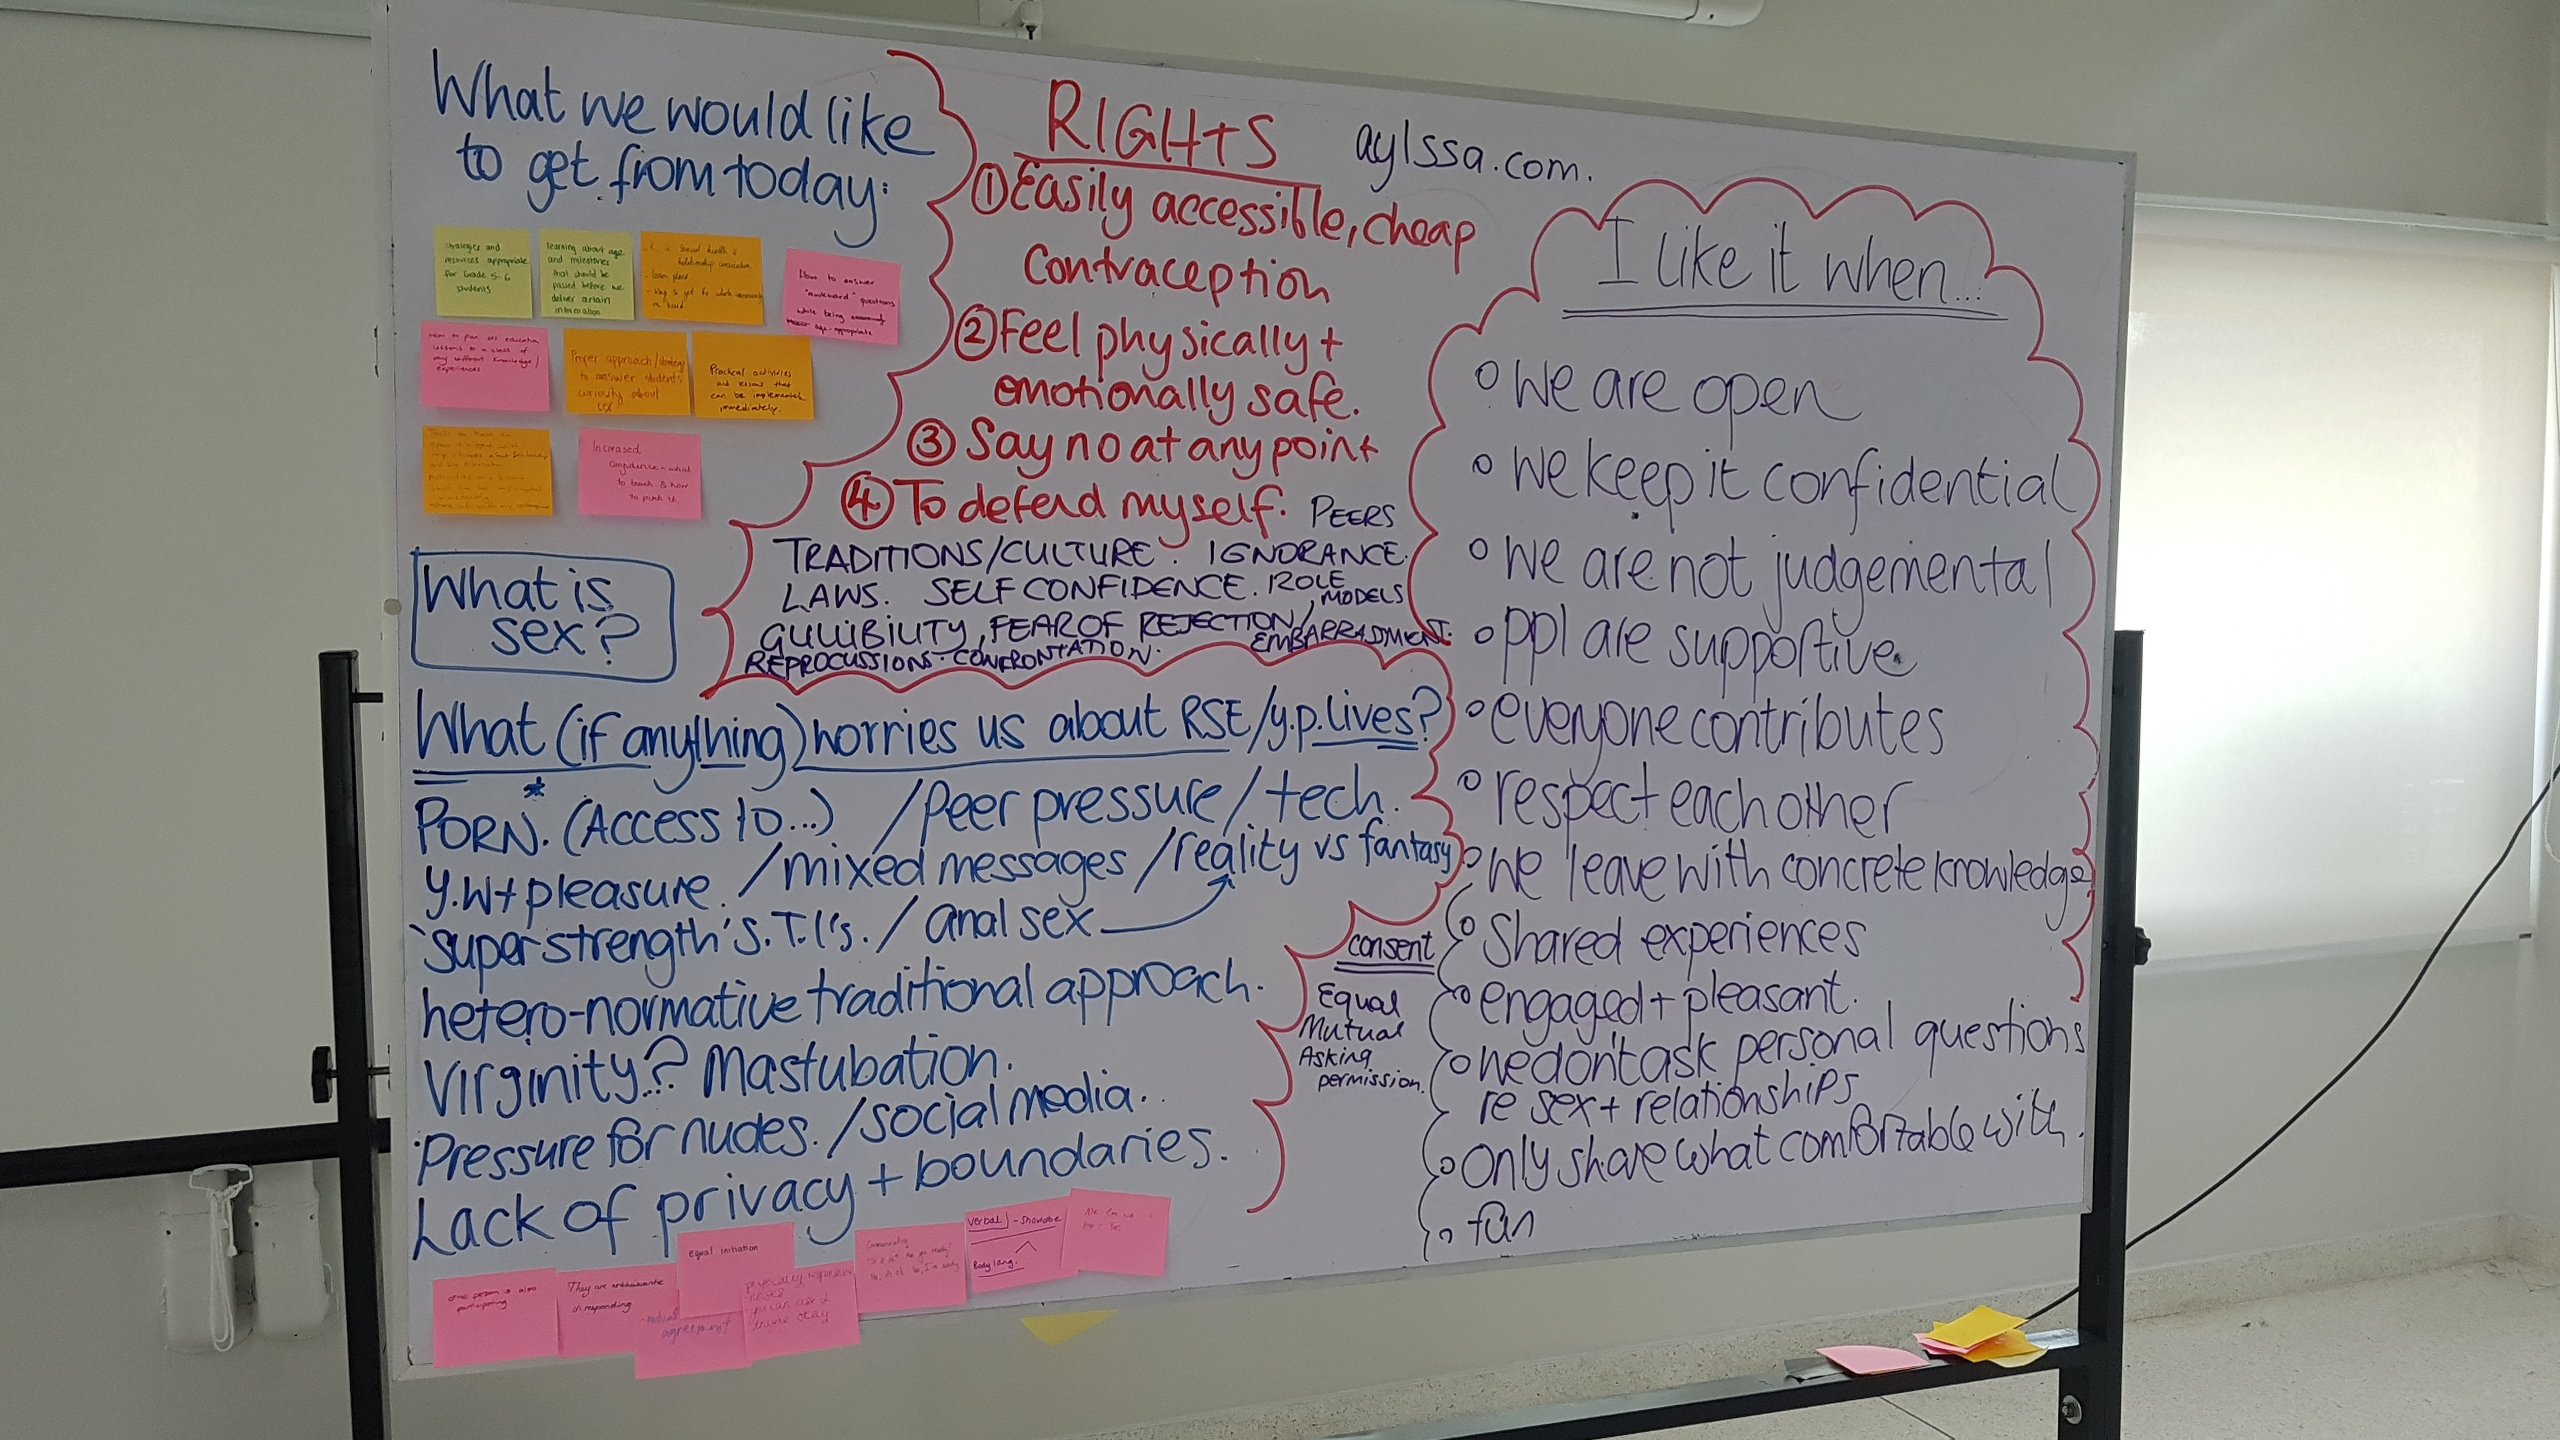 What we would like
to get from today:
Strategies and
resources appropriate
for Grade 5-6
students
learning about age
and milestones
that should be
passed before we
deliver certain
information
sexual health &
How to answer
"awkward" questions
while being
age-appropriate
How to plan sex education
lessons to a class of
different knowledge/
experiences
Proper approach/strategy
to answer students
curiosity about
sex
Practical activities
and lessons that
can be implemented
immediately.
Increased
confidence - what
to teach & how
to pitch it
What is
sex?
RIGHTS
aylssa.com.
① Easily accessible, cheap
Contraception
② Feel physically +
emotionally safe.
③ Say no at any point
④ To defend myself.
PEERS
TRADITIONS/CULTURE. IGNORANCE.
LAWS. SELF CONFIDENCE. ROLE MODELS
GULLIBILITY, FEAR OF REJECTION/
EMBARRASSMENT.
REPROCUSSIONS. CONFRONTATION.
What (if anything) worries us about RSE/y.p. lives?
PORN.* (Access to...) /Peer pressure/tech.
y.w + pleasure. /mixed messages /reality vs fantasy
'superstrength' S.T.I's. / anal sex
hetero-normative traditional approach.
Virginity? Mastubation.
Pressure for nudes. /social media.
Lack of privacy + boundaries.
consent
Equal
Mutual
Asking
permission.
I like it when...
o we are open
o we keep it confidential
o we are not judgemental
o ppl are supportive
o everyone contributes
o respect each other
o we leave with concrete knowledge
o Shared experiences
o engaged + pleasant.
o we don't ask personal questions
re sex + relationships
o Only share what comfortable with.
o fun
other person is also
participating
They are enthusiastic
in responding
equal initiation
mutual
agreement
physically responsive
you can ask if
they're okay
Communicating
verbal
body lang.